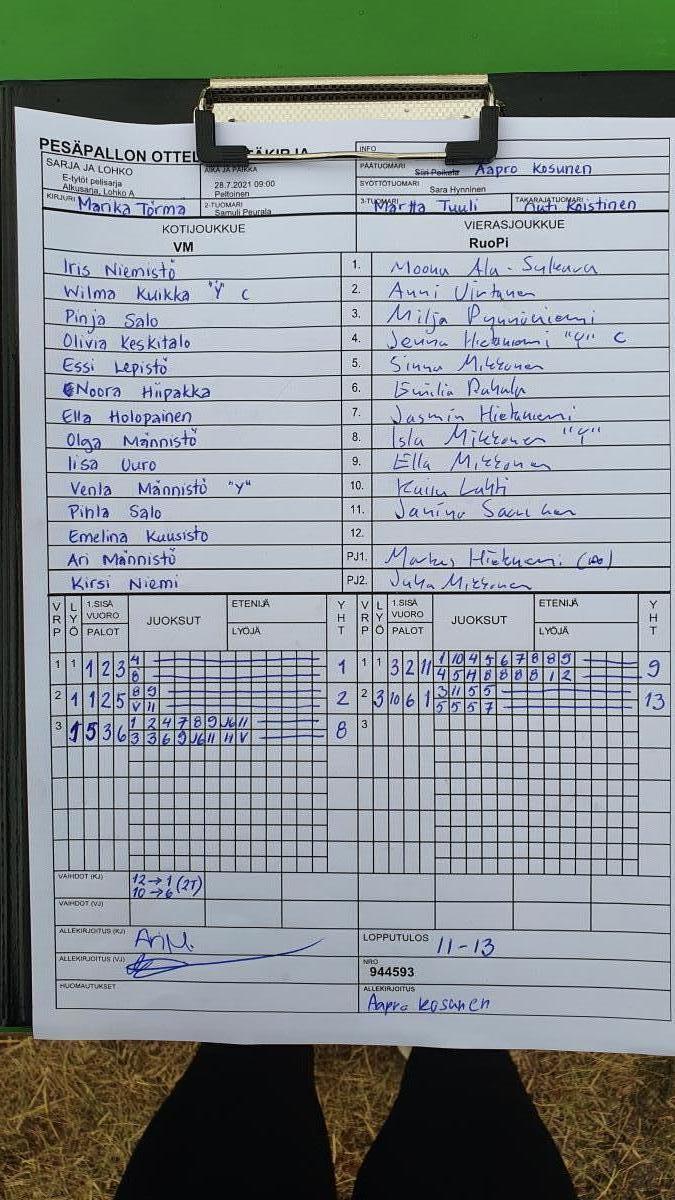 PESÄPALLON OTTEL
SARJA JA LOHKO
E-tytöt pelisarja
Alkusarja, Lohko A
AIKA JA PAIKKA
28.7.2021 09:00
Peltoinen
INFO
PÄÄTUOMARI Siiri Peikola Aapro Kosunen
SYÖTTÖTUOMARI Sara Hynninen
KIRJURI Marika Törmä
2-TUOMARI Samuli Peurala
3-TUOMARI Martta Tuuli
TAKARAJATUOMARI Outi Koistinen
KOTIJOUKKUE
VM
VIERASJOUKKUE
RuoPi
Iris Niemistö 1. Moona Ala-
Wilma Kuikka "Y" C 2. Anni Virtanen
Pinja Salo 3. Milja Pynnöniemi
Olivia Keskitalo 4. Jenna Hietaniemi "Y" C
Essi Lepistö 5. Sinna Mikkonen
Noora Hiipakka 6. Emilia
Ella Holopainen 7. Jasmin Hietaniemi
Olga Männistö 8. Isla Mikkonen "Y"
Iisa Uuro 9. Ella Mikkonen
Venla Männistö "Y" 10. Kaisu Lahti
Pihla Salo 11. Janina
Emelina Kuusisto 12.
Ari Männistö PJ1. Markus Hietaniemi
Kirsi Niemi PJ2. Juha Mikkonen
VRP LYÖ 1.SISÄ VUORO PALOT JUOKSUT ETENIJÄ LYÖJÄ YHT VRP LYÖ 1.SISÄ VUORO PALOT JUOKSUT ETENIJÄ LYÖJÄ YHT
1 1 1 2 3 4 1 1 1 3 2 11 1 10 4 5 6 7 8 8 9 9
8 4 5 4 8 8 8 8 1 2
2 1 1 2 5 8 9 2 2 3 10 6 1 3 11 5 5 13
V 11 5 5 5 7
3 1 5 3 6 1 2 4 7 8 9 10 11 8 3
3 3 6 9 10 11 4 V
VAIHDOT (KJ) 12→1 (2T)
10→6
VAIHDOT (VJ)
ALLEKIRJOITUS (KJ) Ari M.
LOPPUTULOS 11-13
ALLEKIRJOITUS (VJ)
NRO
944593
HUOMAUTUKSET
ALLEKIRJOITUS
Aapro Kosunen